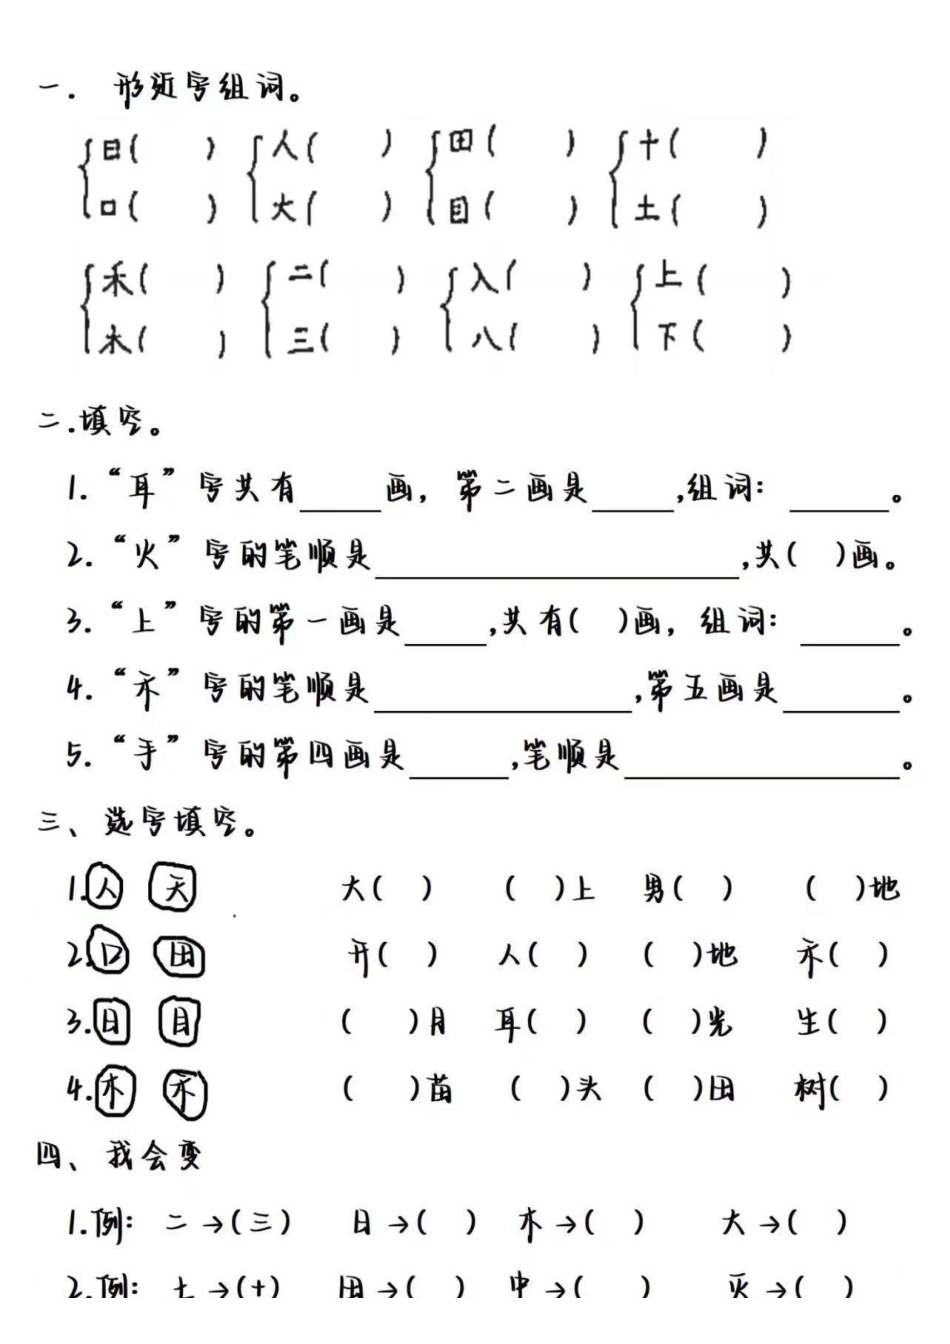 一. 形近字组词。
日( ) 人( ) 田( ) 十( )
口( ) 大( ) 目( ) 土( )
禾( ) 二( ) 入( ) 上( )
木( ) 三( ) 八( ) 下( )
二.填空。
1.“耳”字共有____画，第二画是____,组词：____。
2.“火”字的笔顺是____________,共( )画。
3.“上”字的第一画是____,共有( )画，组词：____。
4.“禾”字的笔顺是____________,第五画是____。
5.“手”字的第四画是____,笔顺是____________。
三、选字填空。
1.人 天 大( ) ( )上 男( ) ( )地
2.口 田 开( ) 人( ) ( )地 禾( )
3.日 目 ( )月 耳( ) ( )光 生( )
4.木 禾 ( )苗 ( )头 ( )田 树( )
四、我会变
1.例：二→(三) 日→( ) 木→( ) 大→( )
2.例：土→(十) 田→( ) 中→( ) 灭→( )